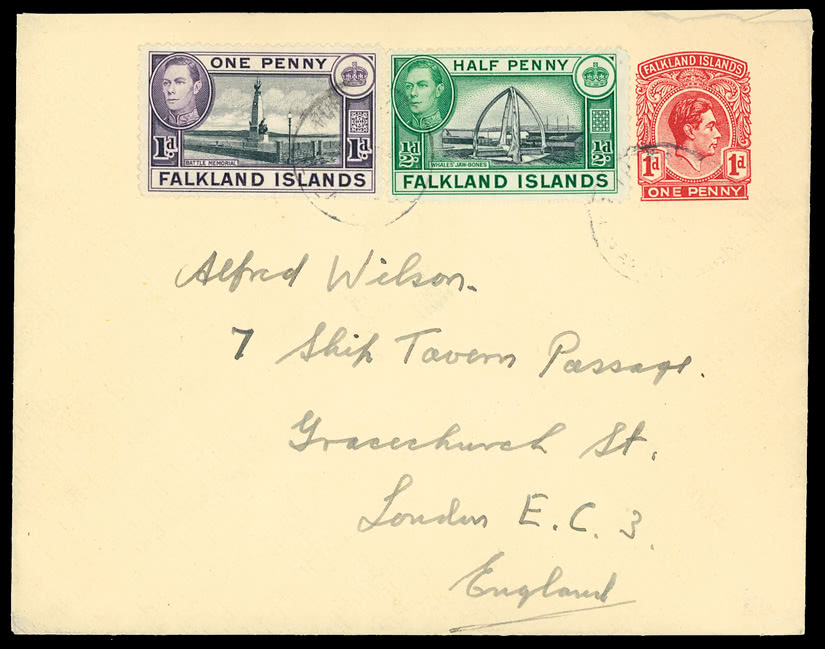 ONE PENNY
1d. 1d.
BATTLE MEMORIAL
FALKLAND ISLANDS
HALF PENNY
½d. ½d.
WHALES' JAW-BONES
FALKLAND ISLANDS
FALKLAND ISLANDS
1d 1d
ONE PENNY
Alfred Wilson.
7 Ship Tavern Passage.
Gracechurch St.
London E.C.3.
England